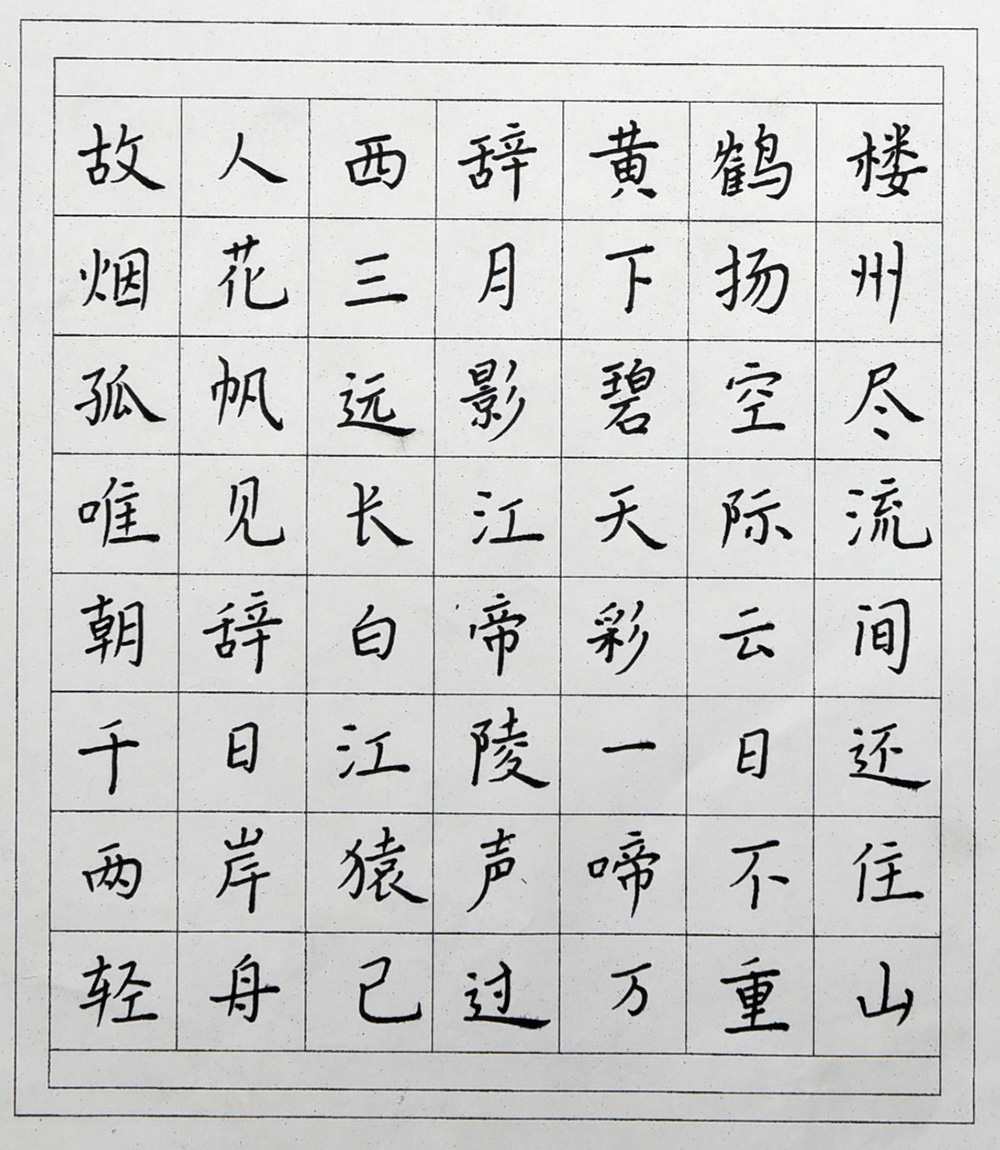 故人西辞黄鹤楼
烟花三月下扬州
孤帆远影碧空尽
唯见长江天际流
朝辞白帝彩云间
千日江陵一日还
两岸猿声啼不住
轻舟已过万重山